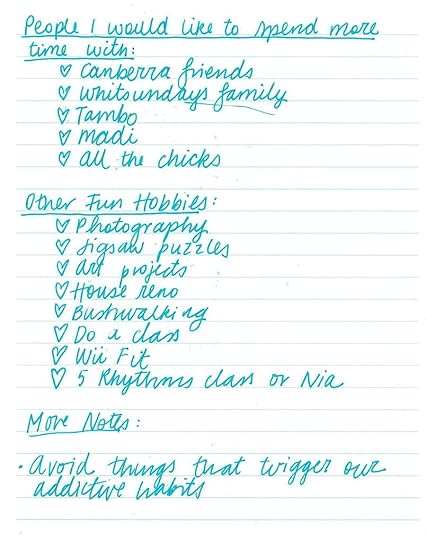 People I would like to spend more
time with:
♡ Canberra friends
♡ Whitsundays family
♡ Tambo
♡ Madi
♡ All the chicks
Other Fun Hobbies:
♡ Photography
♡ Jigsaw puzzles
♡ Art projects
♡ House reno
♡ Bushwalking
♡ Do a class
♡ Wii Fit
♡ 5 Rhythms class or Nia
More Notes:
• Avoid things that trigger our
addictive habits